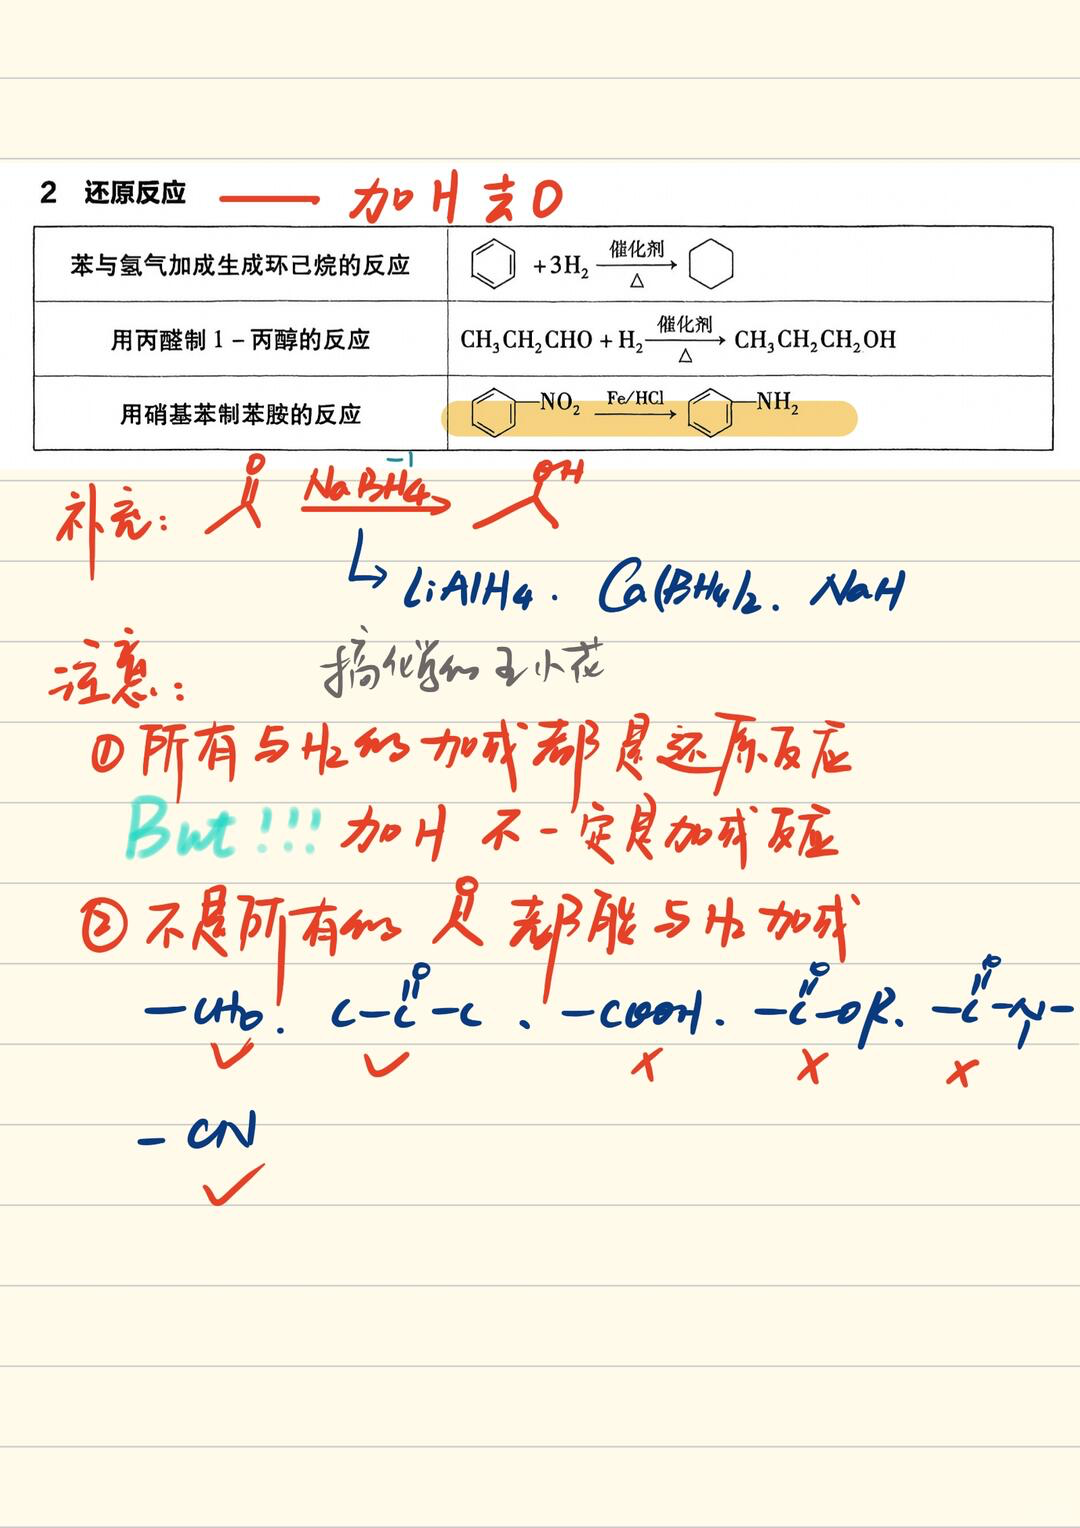 2 还原反应 —— 加H去O
苯与氢气加成生成环己烷的反应 +3H₂ 催化剂 △
用丙醛制1-丙醇的反应 CH₃CH₂CHO + H₂ 催化剂 △ CH₃CH₂CH₂OH
用硝基苯制苯胺的反应 NO₂ Fe/HCl NH₂
补充: O NaBH₄ -1 OH
LiAlH₄. Ca(BH₄)₂. NaH
注意: 搞化学的王小花
①所有与H₂的加成都是还原反应
But!!! 加H 不一定是加成反应
②不是所有的 O 都能与H₂加成
-CHO. C-C(=O)-C. -COOH. -C(=O)-OR. -C(=O)-N-
✓ ✓ × × ×
-CN
✓